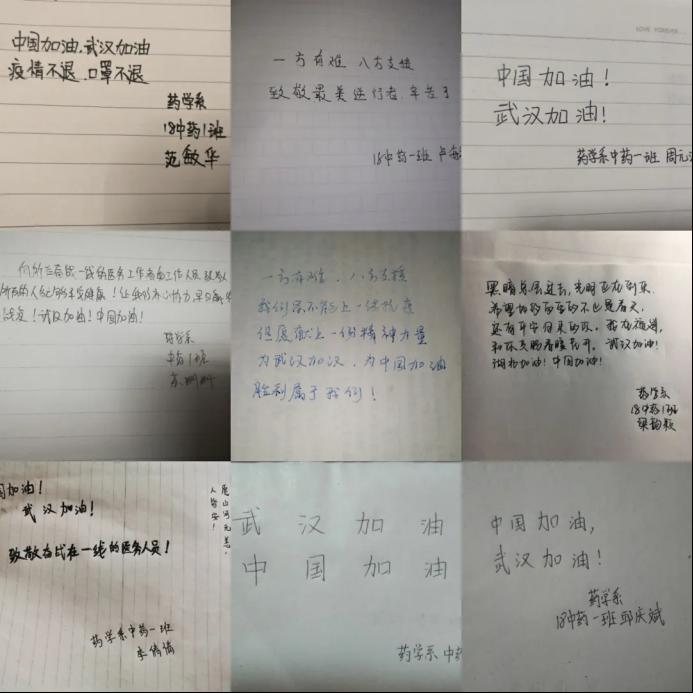 中国加油.武汉加油
疫情不退.口罩不退
药学系
18中药1班
范敏华
一方有难 八方支援
致敬最美逆行者.辛苦了
18中药一班 卢
LOVE FOREVER
中国加油！
武汉加油！
药学系中药一班 周元
向所有在一线的医务工作者和工作人员致敬
所有的人
武汉加油！中国加油！
药学系
中药1班
一方有难，八方支援
我们虽不能上一线抗疫
但愿献上一份精神力量
为武汉加汉，为中国加油
胜利属于我们！
黑暗总属过去，光明正在到来.
希望
和你共盼春暖花开。武汉加油！
湖北加油！中国加油！
药学系
18中药1班
国加油！
武汉加油！
致敬奋战在一线的医务人员！
愿山河无恙，
人皆安！
药学系中药一班
李倩倩
武汉加油
中国加油
药学系 中药
中国加油，
武汉加油！
药学系
18中药一班 邱庆斌